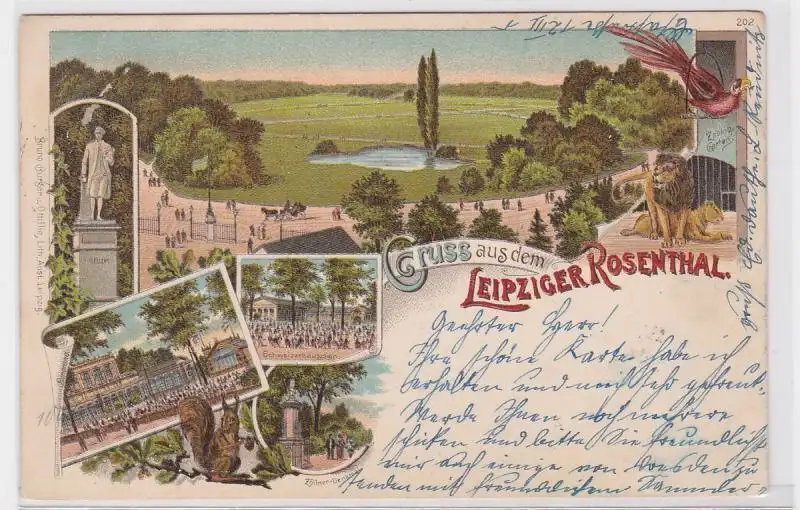 202
Leipzig 12 III
Zoolog.
Garten.
Bruno Bürger & Ottillie, Lith. Anst. Leipzig.
GELLERT
Gruss aus dem
LEIPZIGER ROSENTHAL.
Schweizerhäuschen
Zöllner-Denkmal
Geehrter Herr!
Ihre schöne Karte habe ich
erhalten und mich sehr gefreut.
Werde Ihnen noch mehrere
schicken und bitte Sie freundlichst
mir auch einige von Dresden zu
senden mit freundlichem Sammler-